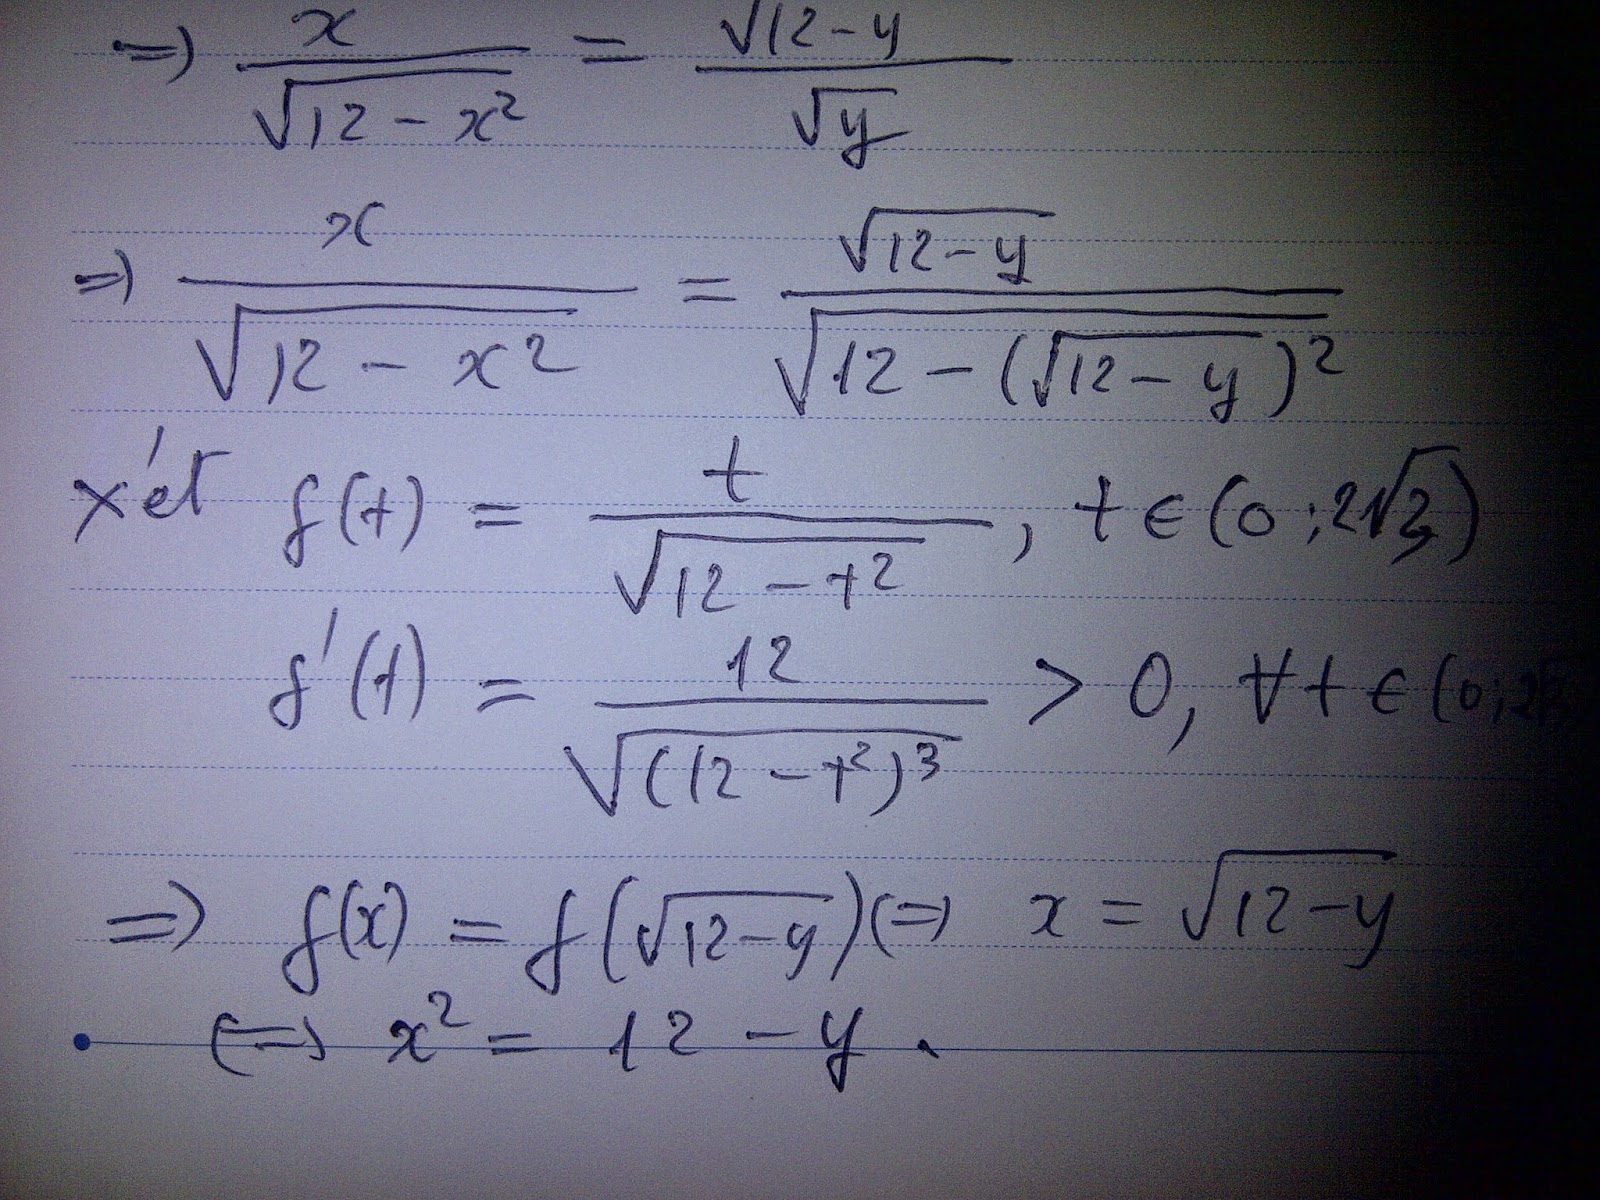 => x/√(12-x²) = √(12-y)/√y
=> x/√(12-x²) = √(12-y)/√(12-(√(12-y))²)
xét f(t) = t/√(12-t²), t ∈ (0;2√3)
f'(t) = 12/√((12-t²)³) > 0, ∀t ∈ (0;2√3)
=> f(x) = f(√(12-y)) <=> x = √(12-y)
<=> x² = 12-y.